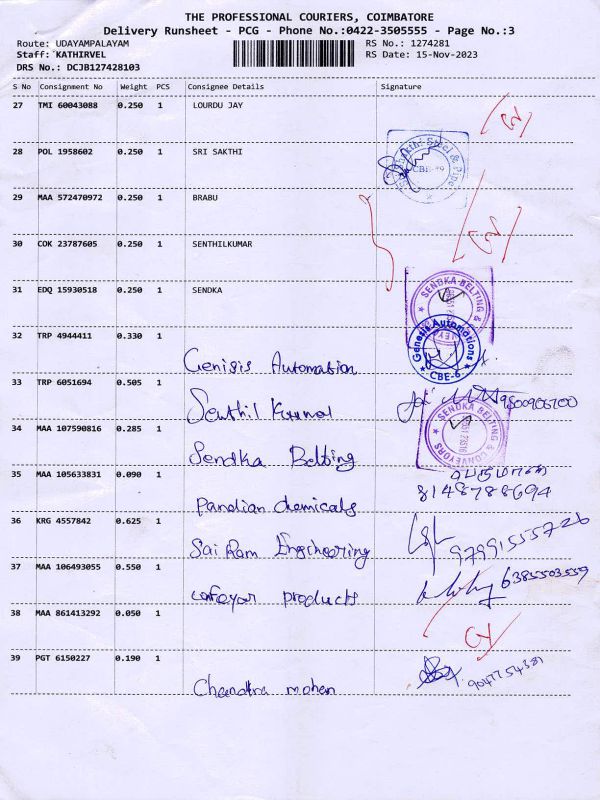 THE PROFESSIONAL COURIERS, COIMBATORE
Delivery Runsheet - PCG - Phone No.:0422-3505555 - Page No.:3
Route: UDAYAMPALAYAM
RS No.: 1274281
Staff: KATHIRVEL
RS Date: 15-Nov-2023
DRS No.: DCJB127428103
S No Consignment No Weight PCS Consignee Details Signature
27 TMI 60043088 0.250 1 LOURDU JAY
28 POL 1958602 0.250 1 SRI SAKTHI
Steel & Pipe
CBE-19
29 MAA 572470972 0.250 1 BRABU
30 COK 23787605 0.250 1 SENTHILKUMAR
31 EDQ 15930518 0.250 1 SENDKA
SENDKA BELTING &
32 TRP 4944411 0.330 1 Genisis Automation
Genesis Automations
CBE-6
33 TRP 6051694 0.505 1 Senthil Kumal
34 MAA 107590816 0.285 1 Sendka Belting
SENDKA BELTING & CONVEYORS
35 MAA 105633831 0.090 1 Pandian chemicals
8148788694
36 KRG 4557842 0.625 1 Sai Ram Engineering
9791555726
37 MAA 106493055 0.550 1 products
6385503559
38 MAA 861413292 0.050 1
39 PGT 6150227 0.190 1 Chandra mohan
9047754381